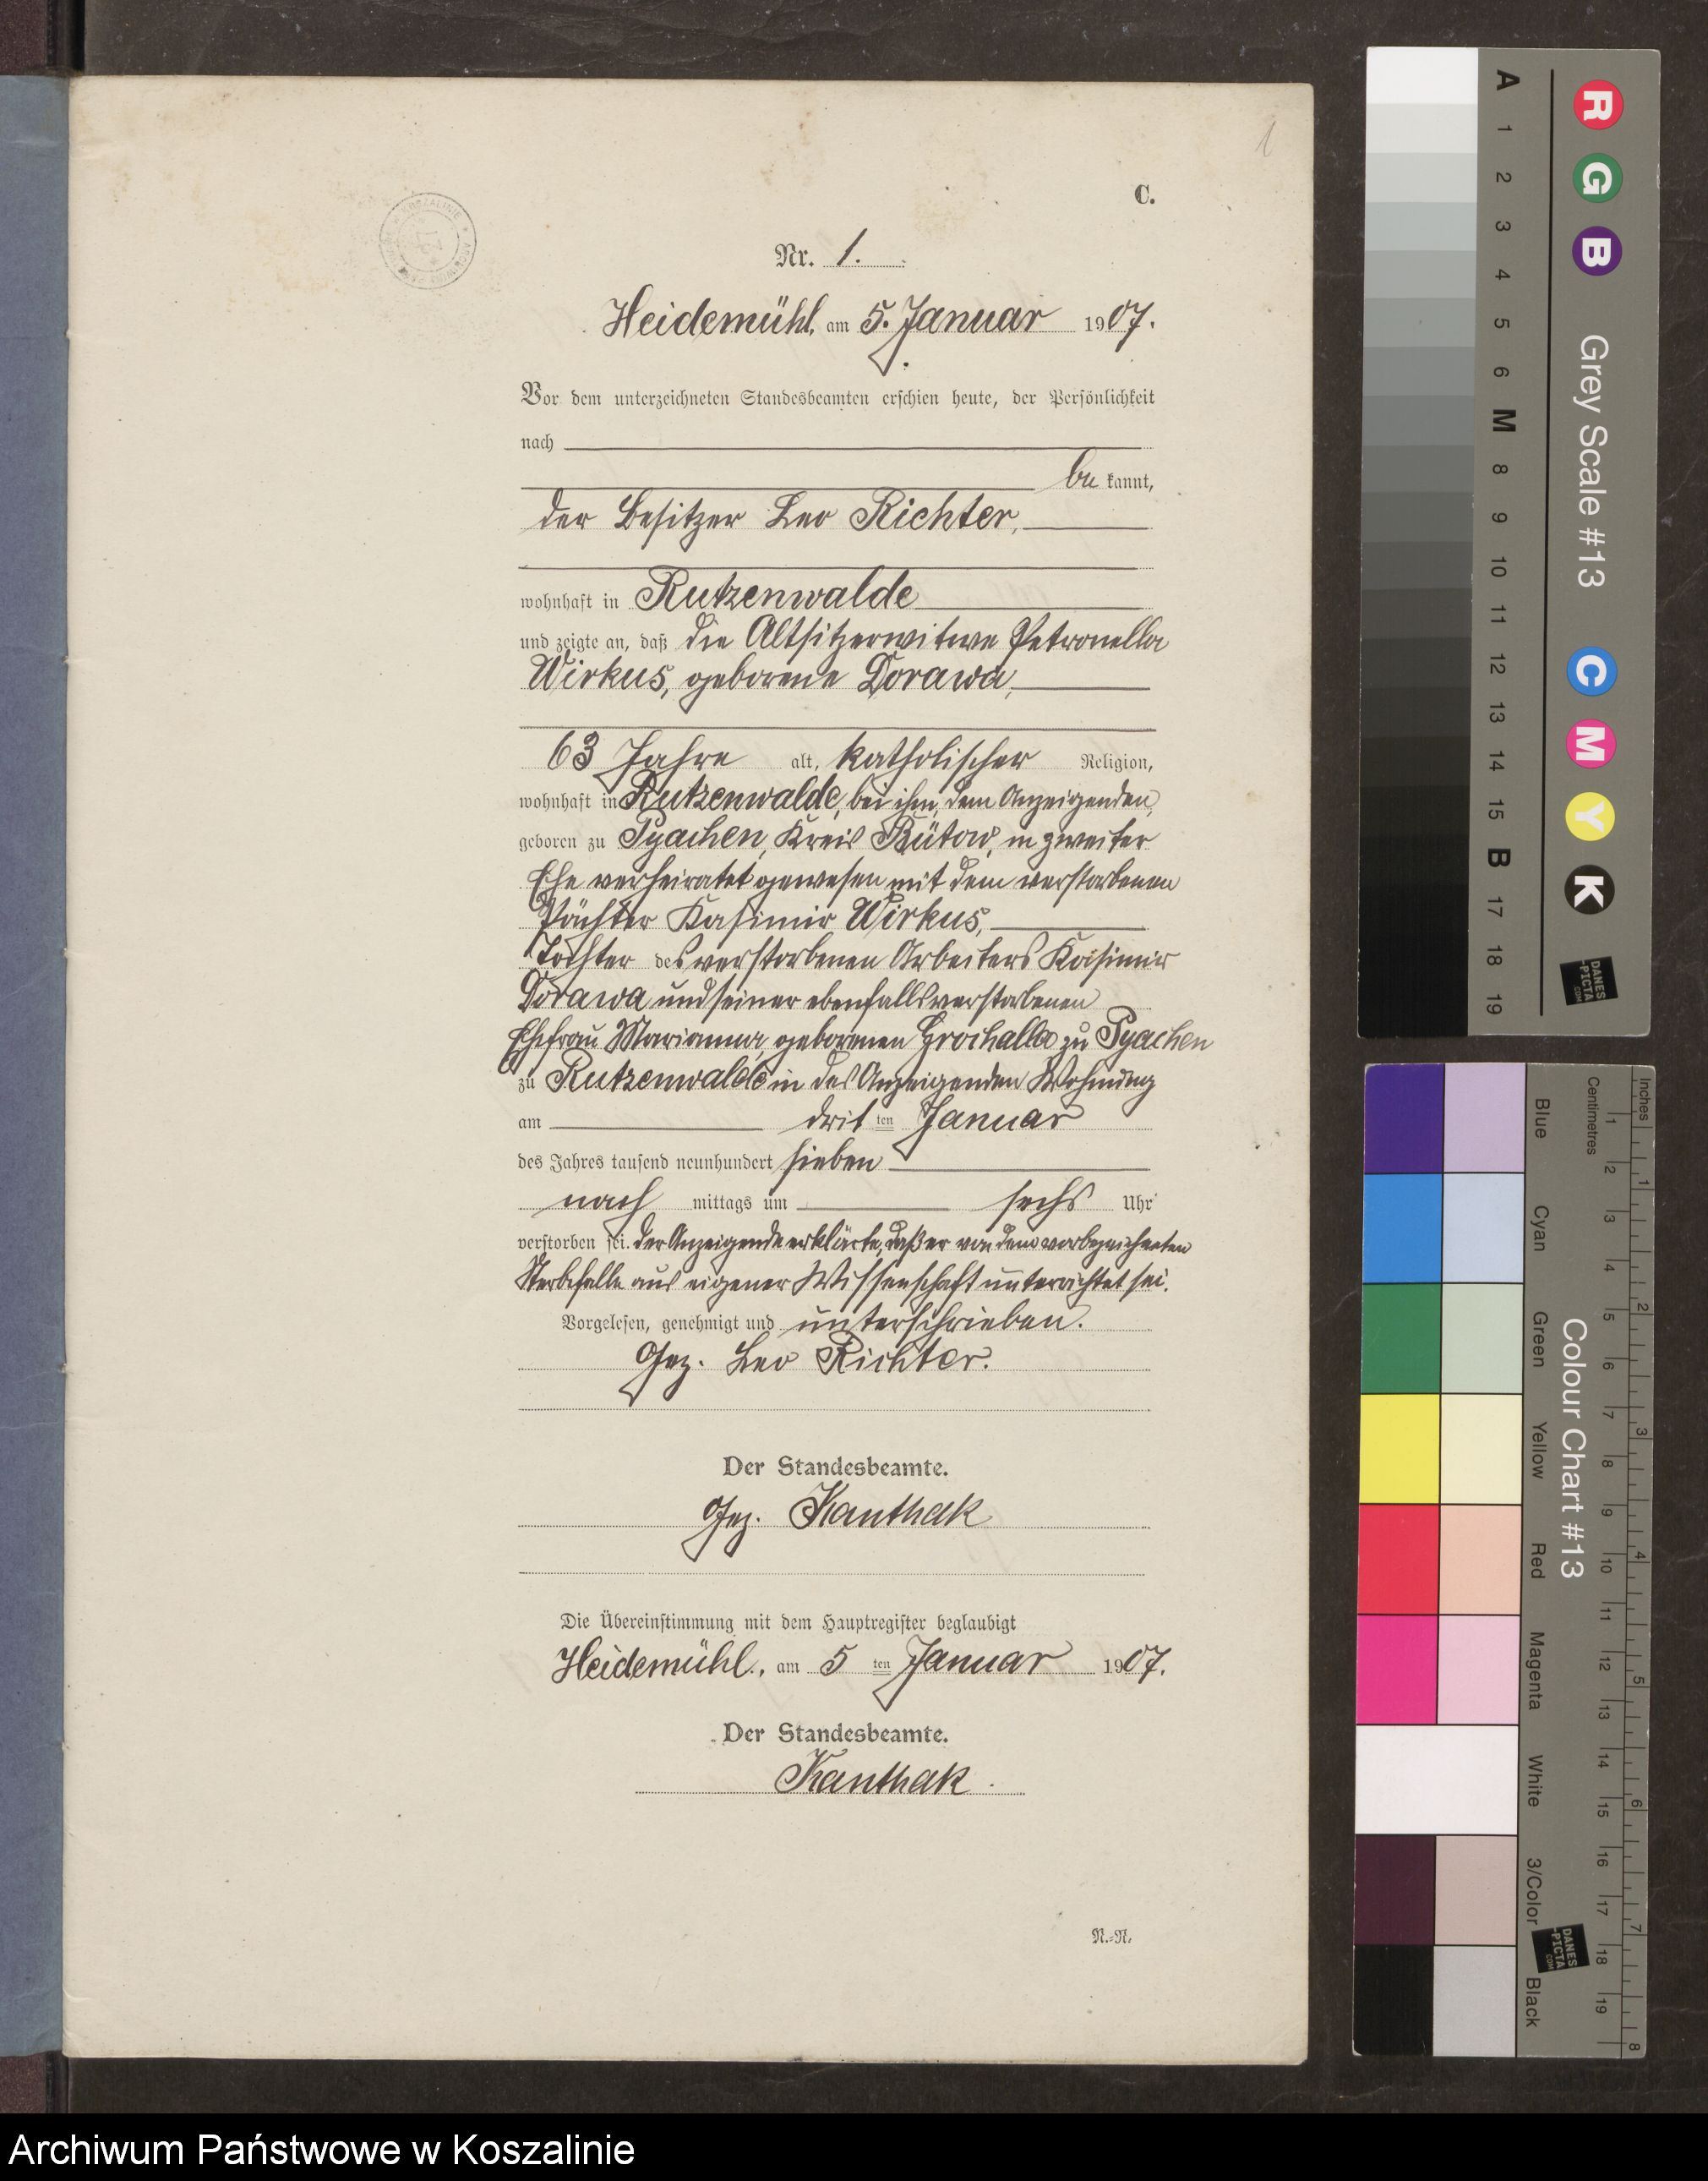 1
C.
Nr. 1.
Heidemühl, am 5. Januar 1907.
Vor dem unterzeichneten Standesbeamten erschien heute, der Persönlichkeit
nach
be kannt,
der Besitzer Leo Richter,
wohnhaft in Rutzenwalde
und zeigte an, daß die Altsitzerwitwe Petronella
Wirkus, geborene Dorawa,
63 Jahre alt, katholischer Religion,
wohnhaft in Rutzenwalde, bei ihm, dem Anzeigenden,
geboren zu Pyachen, Kreis Bütow, in zweiter
Ehe verheiratet gewesen mit dem verstorbenen
Pächter Kasimir Wirkus,
Tochter des verstorbenen Arbeiters Kasimir
Dorawa und seiner ebenfalls verstorbenen
Ehefrau Marianna, geborenen Grochalla zu Pyachen
zu Rutzenwalde in des Anzeigenden Wohnung
am drit ten Januar
des Jahres tausend neunhundert sieben
nach mittags um sechs Uhr
verstorben sei. Der Anzeigende erklärte, daß er von dem vorbezeichneten
Sterbefalle aus eigener Wissenschaft unterrichtet sei.
Vorgelesen, genehmigt und unterschrieben.
Gez. Leo Richter.
Der Standesbeamte.
Gez. Kanthak
Die Übereinstimmung mit dem Hauptregister beglaubigt
Heidemühl, am 5 ten Januar 1907.
Der Standesbeamte.
Kanthak.
N.-N.
Archiwum Państwowe w Koszalinie
A 1 2 3 4 5 6 M 8 9 10 11 12 13 14 15 B 17 18 19
R G B
Grey Scale #13
C M Y K
DANES
-PICTA
.COM
Blue Cyan Green Yellow Red Magenta White 3/Color Black
Colour Chart #13
Centimetres 1 2 3 4 5 6 7 8 9 10 11 12 13 14 15 16 17 18 19
Inches 1 2 3 4 5 6 7 8
DANES
-PICTA
.COM